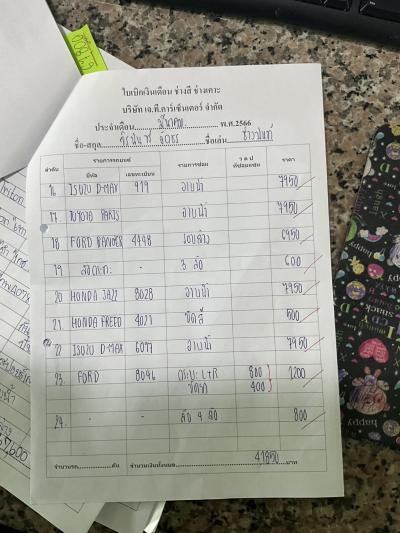 ใบเบิกเงินเดือน ช่างสี ช่างเคาะ
บริษัท เจ.ที.คาร์เซ็นเตอร์ จำกัด
ประจำเดือน มีนาคม พ.ศ.2566
ชื่อ-สกุล ชื่อเล่น
ลำดับ รายการรถยนต์ รายการซ่อม ว ด ป ที่ซ่อมเสร็จ ราคา
ยี่ห้อ เลขทะเบียน
16 ISUZU D-MAX 919 อาบน้ำ 7950
17 TOYOTA YARIS อาบน้ำ 7950
18 FORD RANGER 4448 6950
19 - 3 ล้อ 600
20 HONDA JAZZ 8028 อาบน้ำ 7950
21 HONDA FREED 4021 ขัดสี 500
22 ISUZU D-MAX 6077 อาบน้ำ 7950
23 FORD 8046 กระบะ L+R 800 1200
400
24 - - ล้อ 4 ล้อ 800
จำนวนรถ คัน จำนวนเงินทั้งหมด 41,850 บาท